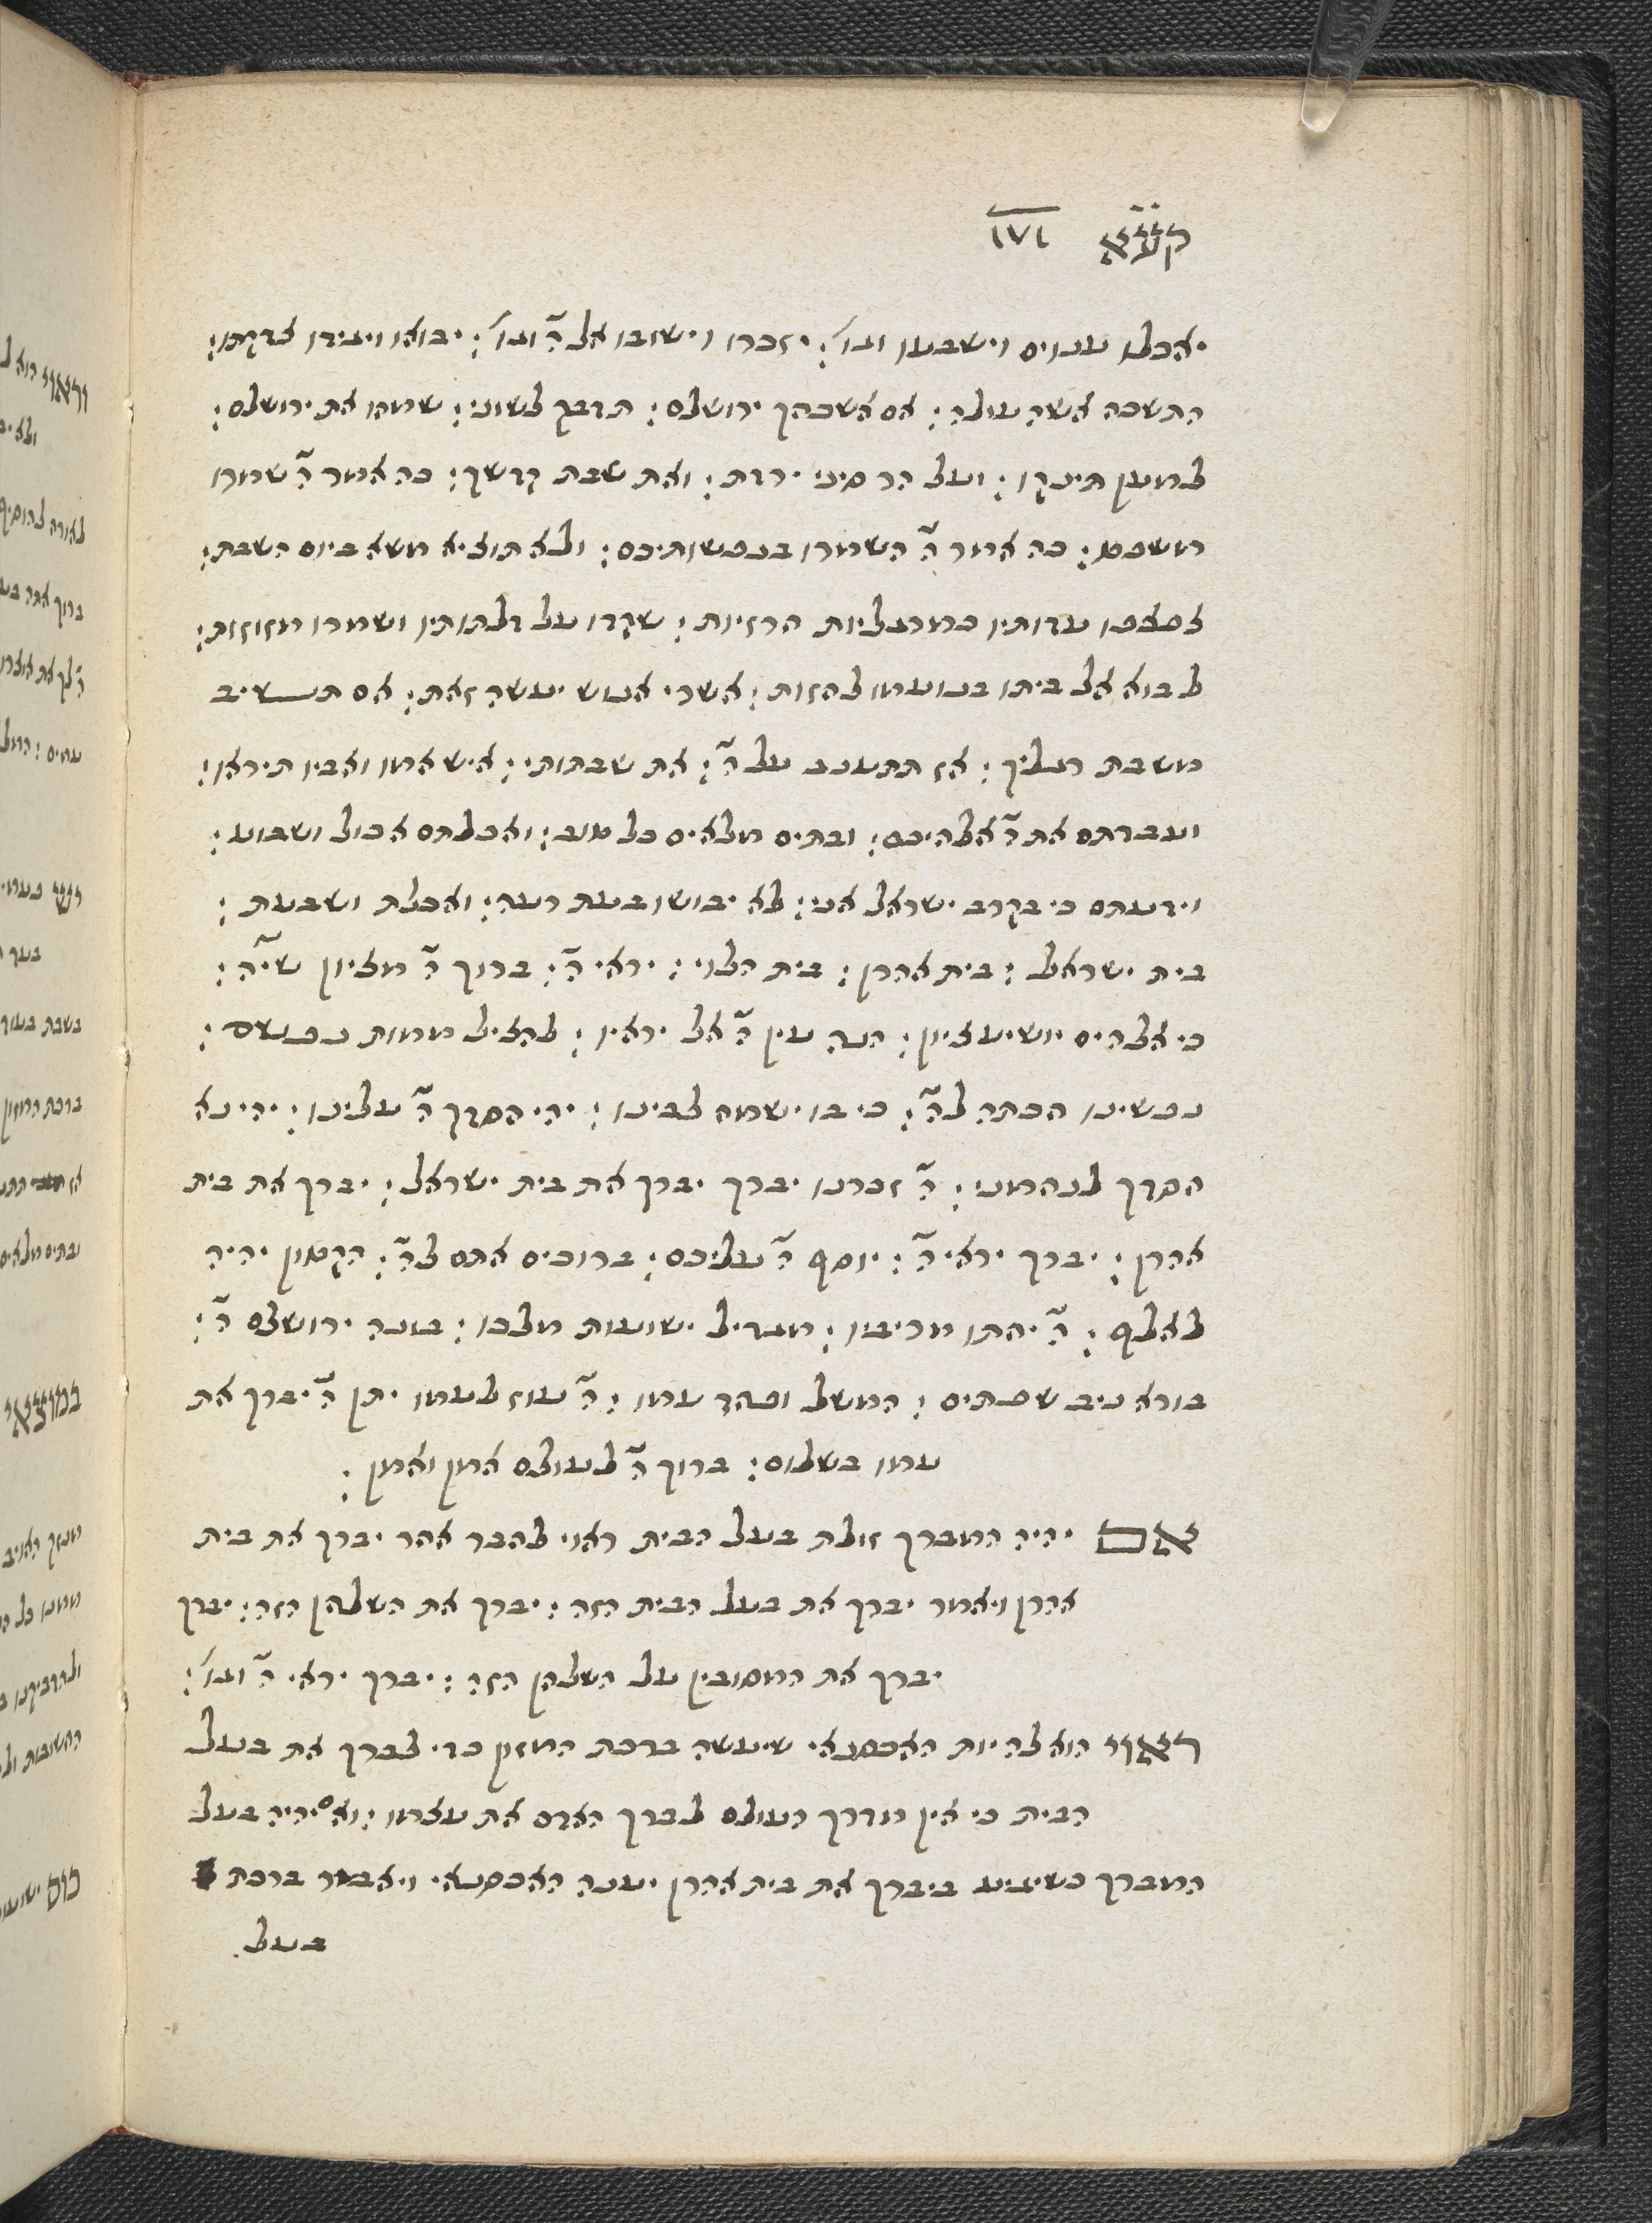 קעא ١٧١
יאכלו ענוים וישבעו וגו׳: יזכרו וישובו אל ה׳ וגו׳: יבואו ויגידו צדקתו:
התשכח אשה עולה: אם אשכחך ירושלם: תדבק לשוני: שמחו את ירושלם:
למען תינקו: ועל הר סיני ירדת: ואת שבת קדשך: כה אמר ה׳ שמרו
משפט: כה אמר ה׳ השמרו בנפשותיכם: ולא תוציא משא ביום השבת:
צפצפו עדותיו כמרגליות הרזיות: שקדו על דלתותיו ושמרו מזוזות:
לבוא אל ביתו בנועמו לחזות: אשרי אנוש יעשה זאת: אם תשיב
משבת רגליך: אז תתענג על ה׳: את שבתותי: איש אמו ואביו תיראו:
ועבדתם את ה׳ אלהיכם: ובתים מלאים כל טוב: ואכלתם אכול ושבוע:
וידעתם כי בקרב ישראל אני: לא יבושו בעת רעה: ואכלת ושבעת:
בית ישראל: בית אהרן: בית הלוי: יראי ה׳: ברוך ה׳ מציון ש״ה:
כי אלהים יושיע ציון: הנה עין ה׳ אל יראיו: להציל ממות נפשם:
נפשינו חכתה לה׳: כי בו ישמח לבינו: יהי חסדך ה׳ עלינו: יהי נא
חסדך לנחמני: ה׳ זכרנו יברך יברך את בית ישראל: יברך את בית
אהרן: יברך יראי ה׳: יוסף ה׳ עליכם: ברוכים אתם לה׳: הקטון יהיה
לאלף: ה׳ יחתו מריביו: מגדיל ישועות מלכו: בונה ירושלם ה׳:
בורא ניב שפתים: המשל ופחד עמו: ה׳ עוז לעמו יתן ה׳ יברך את
עמו בשלום: ברוך ה׳ לעולם אמן ואמן:
אם יהיה המברך זולת בעל הבית ראוי להבר אחר יברך את בית
אהרן ויאמר יברך את בעל הבית הזה: יברך את השלחן הזה: יברך
יברך את המסובין על השלחן הזה: יברך יראי ה׳ וגו׳:
ראוי הוא להיות האכסנאי שיעשה ברכת המזון כדי לברך את בעל
הבית כי אין מדרך העולם לברך האדם את עצמו: ואם יהיה בעל
המברך כשיגיע ביברך את בית אהרן יענה האכסנאי ויאמר ברכת
בעל